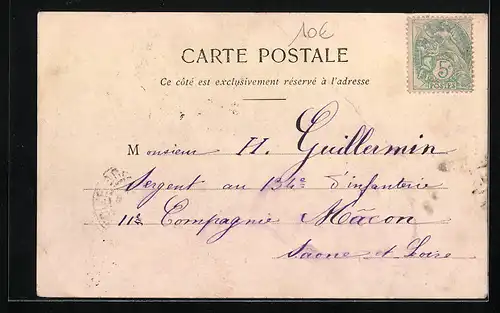 10€
CARTE POSTALE
Ce côté est exclusivement réservé à l'adresse
5c
POSTES
Monsieur H. Guillermin
Sergent au 134e d'infanterie
11e Compagnie Mâcon
Saone et Loire